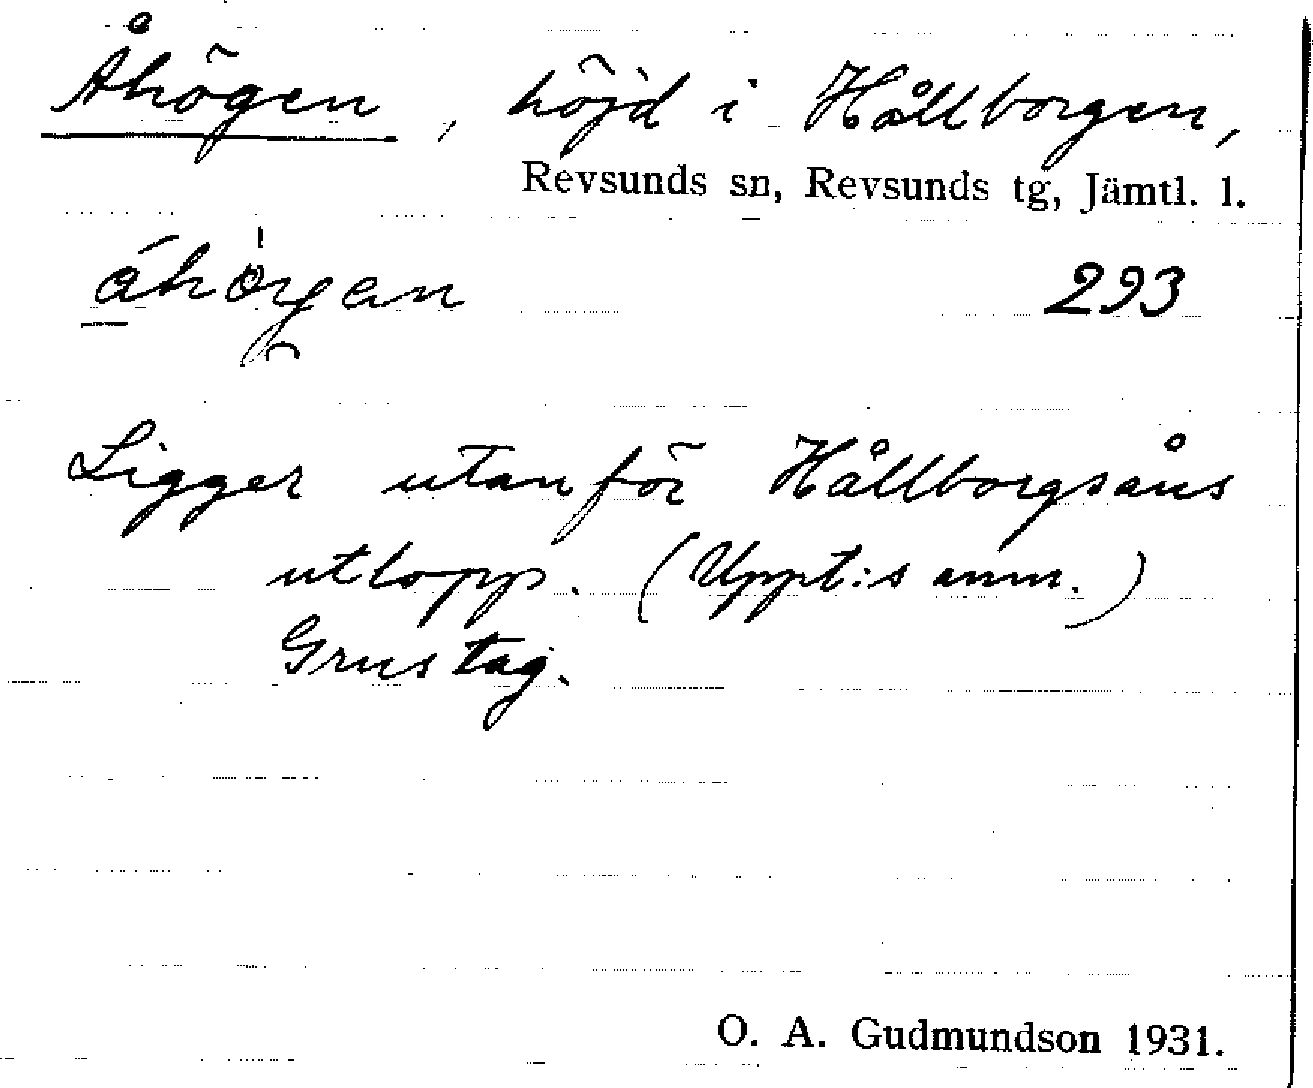 Åhögen, höjd i Hållborgen,
Revsunds sn, Revsunds tg, Jämtl. l.
293
Ligger utanför Hållborgsåns
utlopp. (Uppt:s anm.)
Grustag.
O. A. Gudmundson 1931.